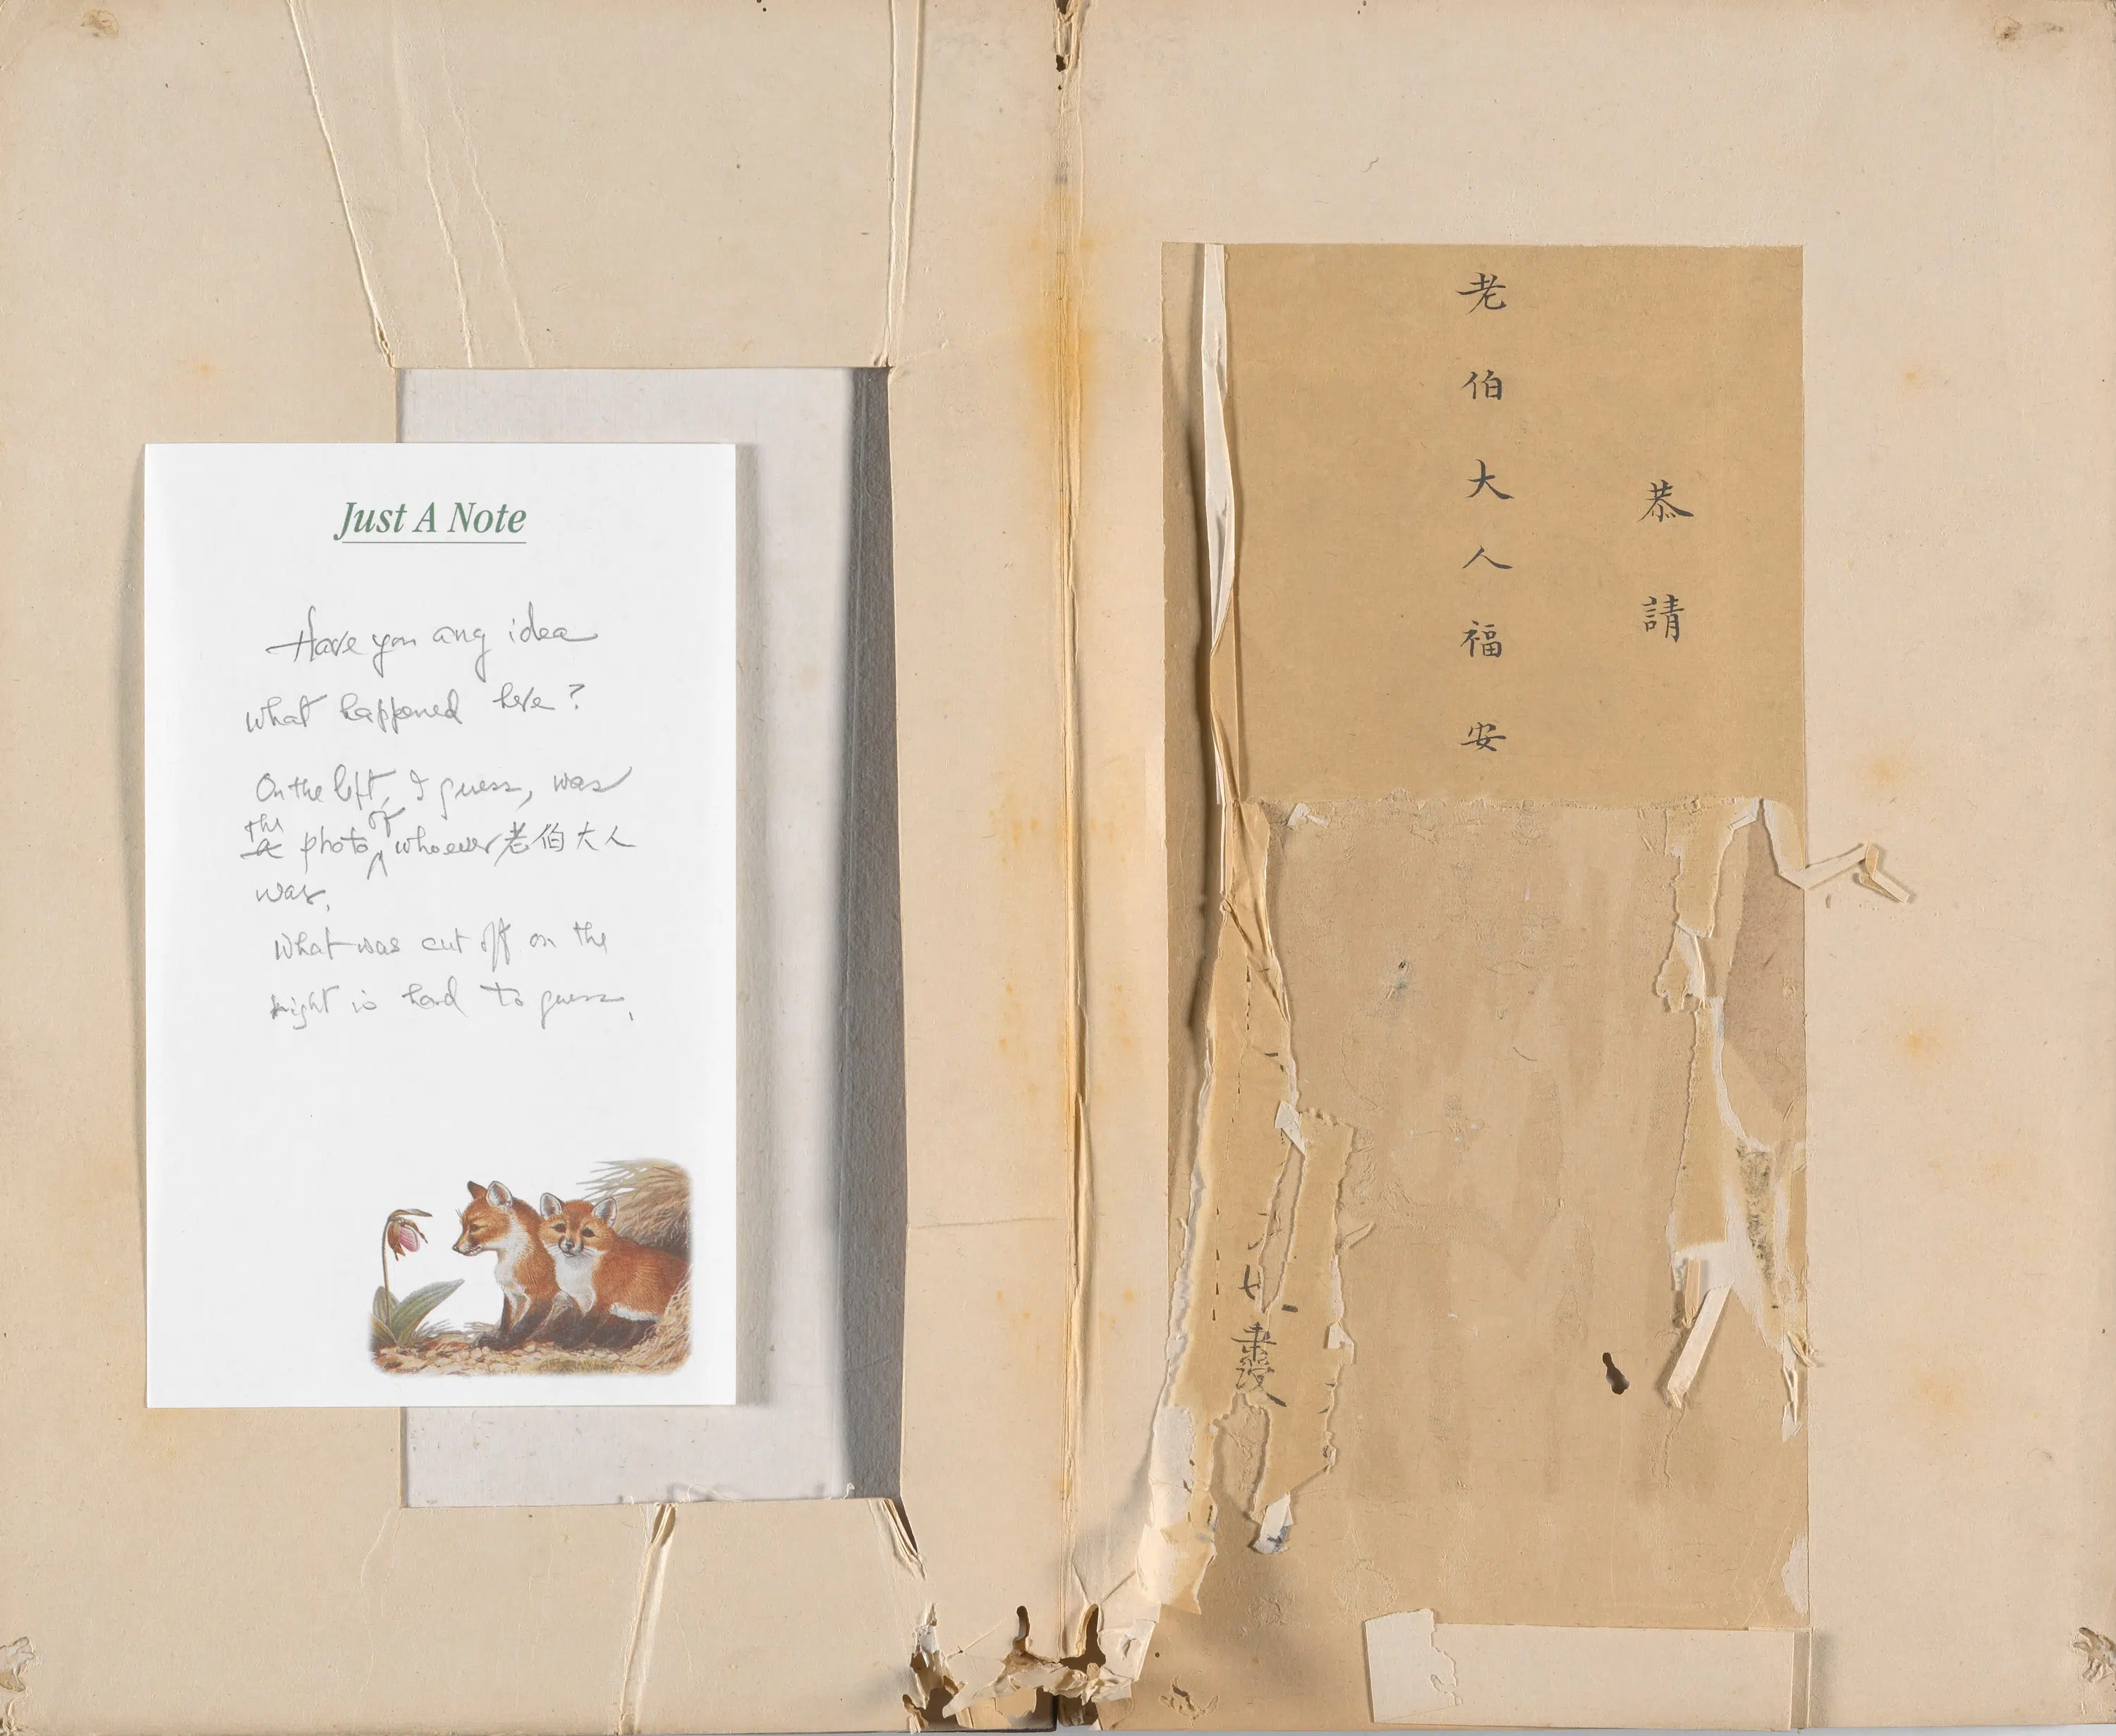 Just A Note
Have you any idea
what happened here?
On the left, I guess, was
the photo of whoever 老伯大人
was.
What was cut off on the
right is hard to guess.
恭請
老伯大人福安